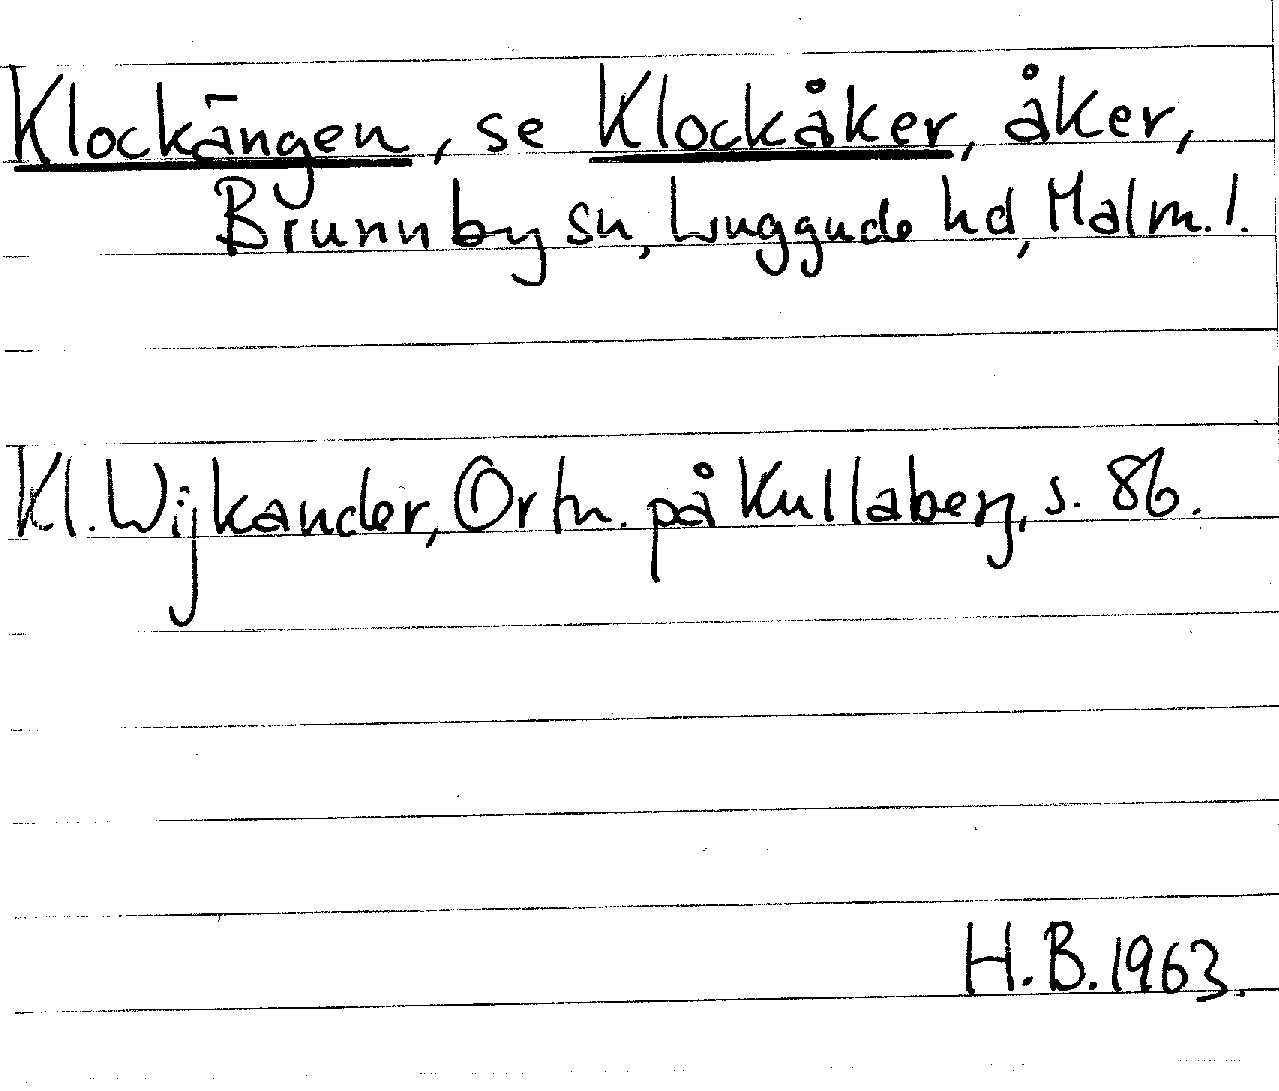 Klockängen, se Klockåker, åker,
Brunnby sn, Luggude hd, Malm. l.
Kl. Wijkander, Ortn. på Kullaberg, s. 86.
H.B. 1963.